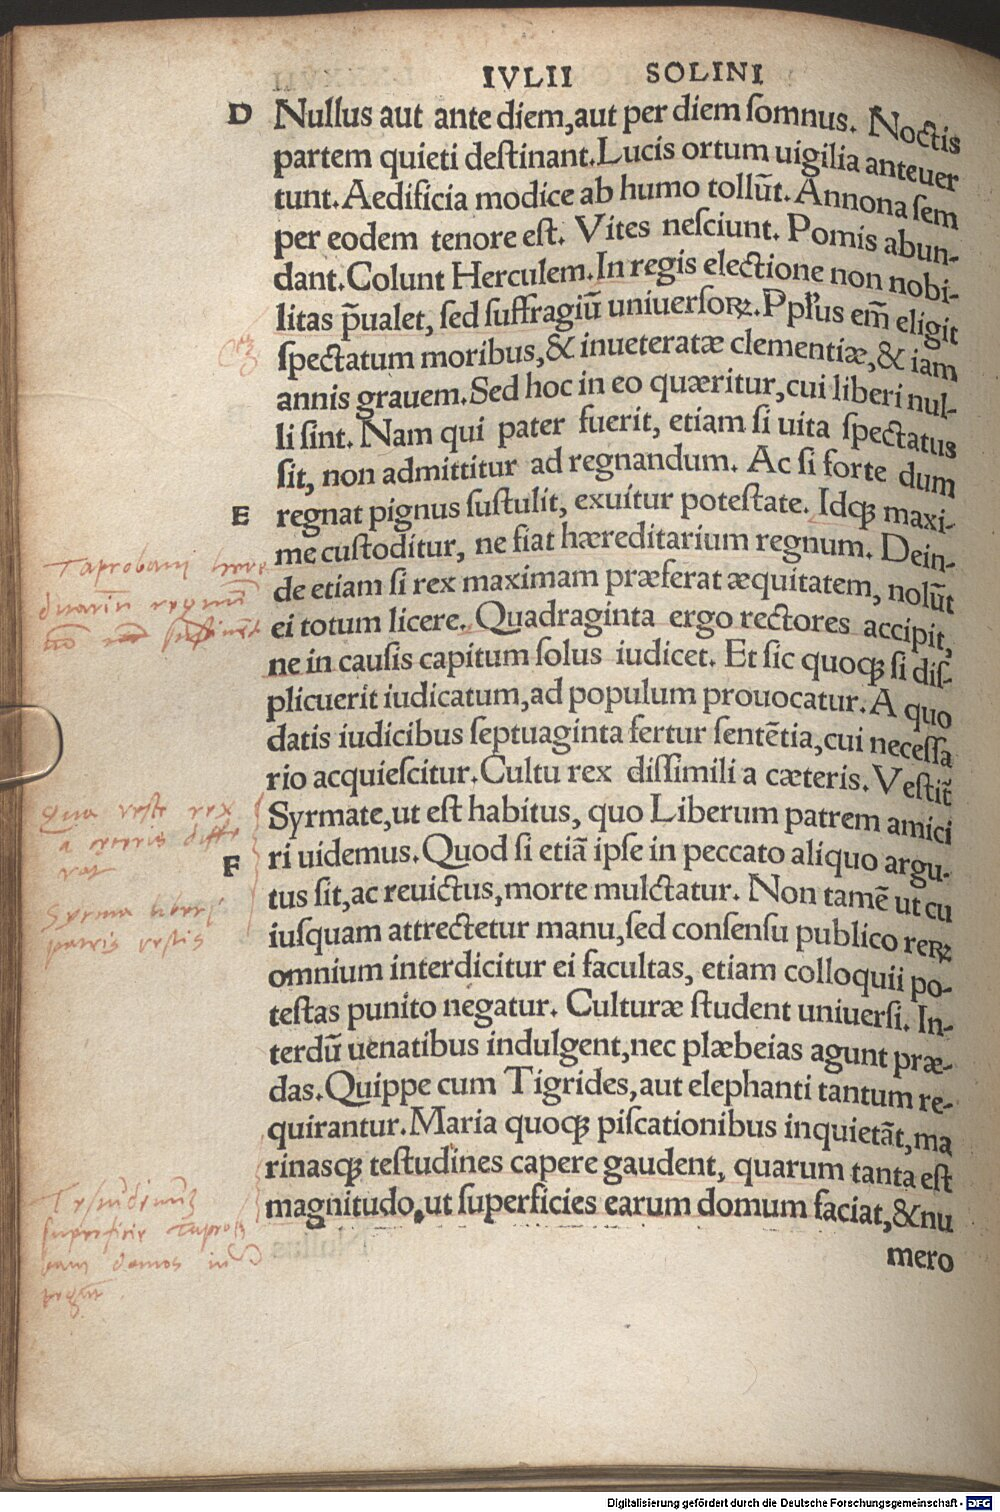 IVLII SOLINI
D Nullus aut ante diem,aut per diem ſomnus. Noctis
partem quieti deſtinant.Lucis ortum uigilia anteuer
tunt.Aedificia modice ab humo tollũt.Annona ſem
per eodem tenore eſt. Vites neſciunt. Pomis abun-
dant.Colunt Herculem.In regis electione non nobi-
litas p̃ualet, ſed ſuffragiũ uniuerſoꝝ.Pp̃lus em̃ eligit
ſpectatum moribus,& inueteratæ clementiæ,& iam
annis grauem.Sed hoc in eo quæritur,cui liberi nul-
li ſint. Nam qui pater fuerit, etiam ſi uita ſpectatus
ſit, non admittitur ad regnandum. Ac ſi forte dum
E regnat pignus ſuſtulit, exuitur poteſtate. Idqꝫ maxi-
me cuſtoditur, ne fiat hæreditarium regnum. Dein-
de etiam ſi rex maximam præferat æquitatem, nolũt
ei totum licere. Quadraginta ergo rectores accipit,
ne in cauſis capitum ſolus iudicet. Et ſic quoqꝫ ſi diſ-
plicuerit iudicatum,ad populum prouocatur.A quo
datis iudicibus ſeptuaginta fertur ſentẽtia,cui neceſſa
rio acquieſcitur.Cultu rex diſſimili a cæteris. Veſtit̃
Syrmate,ut eſt habitus, quo Liberum patrem amici
F ri uidemus.Quod ſi etiã ipſe in peccato aliquo argu-
tus ſit,ac reuictus,morte mulctatur. Non tamẽ ut cu
iuſquam attrectetur manu,ſed conſenſu publico reꝝ
omnium interdicitur ei facultas, etiam colloquii po-
teſtas punito negatur. Culturæ ſtudent uniuerſi. In-
terdũ uenatibus indulgent,nec plæbeias agunt præ-
das.Quippe cum Tigrides,aut elephanti tantum re-
quirantur.Maria quoqꝫ piſcationibus inquietãt,ma
rinasqꝫ teſtudines capere gaudent, quarum tanta eſt
magnitudo,ut ſuperficies earum domum faciat,&nu
mero
Taprobani here
ditariũ regnũ
nõ
Qua veſte rex
a ceteris diffe
rat
Syrma liberi
patris veſtis
Teſtudinũ
ſuperficie Tapro
bani domos in
tegũt
Digitalisierung gefördert durch die Deutsche Forschungsgemeinschaft - DFG